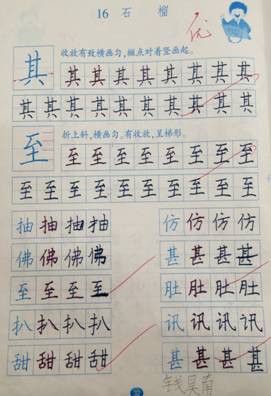 16 石 榴
优
其 收放有致横画匀,撇点对着竖画起。
其 其 其 其 其 其 其 其
其 其 其 其 其 其 其 其 其 其
至 折上斜,横画匀,有收放,呈梯形。
至 至 至 至 至 至 至 至
至 至 至 至 至 至 至 至 至 至
抽 抽 抽 抽 仿 仿 仿 仿
佛 佛 佛 佛 甚 甚 甚 甚
至 至 至 至 肚 肚 肚 肚
扒 扒 扒 扒 讯 讯 讯 讯
甜 甜 甜 甜 甚 甚 甚 甚